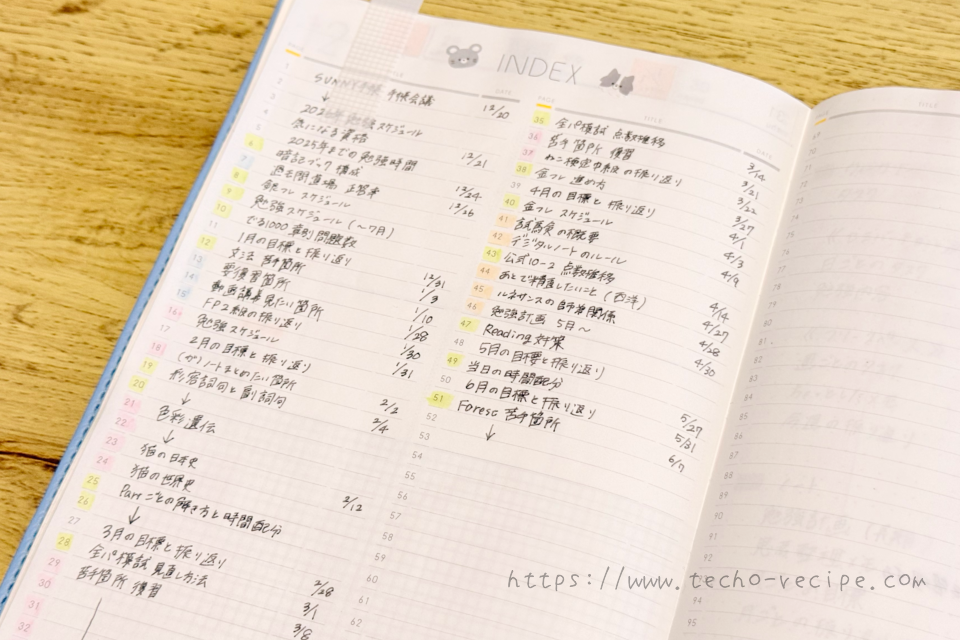 INDEX
PAGE
TITLE
DATE
1
SUNNY手帳 手帳会議 12/20
↓
スケジュール
気になる資格
2025年までの勉強時間 12/21
6
暗記ブック 構成
7
過去問道場 正答率 12/24
8
銀フレ スケジュール 12/26
9
勉強スケジュール (〜7月)
10
でる1000 章別問題数
11
1月の目標と振り返り
12
文法 苦手箇所 12/31
13
要復習箇所 1/3
14
動画講義見たい箇所 1/10
15
FP2級の振り返り 1/28
16
勉強スケジュール 1/30
17
2月の目標と振り返り 1/31
18
19
形容詞句と副詞句 2/2
20
↓ 2/4
21
色彩遺伝
22
↓
23
猫の日本史
24
猫の世界史
25
Partごとの解き方と時間配分 2/12
26
↓
27
3月の目標と振り返り
28
見直し方法 2/28
29
苦手箇所 復習 3/1
30
3/8
31
32
PAGE
TITLE
DATE
35
点数推移
36
苦手箇所 復習 3/14
37
ねこ検定中級の振り返り 3/21
38
金フレ 進め方 3/22
39
4月の目標と振り返り 3/27
40
金フレ スケジュール 4/1
41
の概要 4/3
42
デジタルノートのルール 4/9
43
公式10-2 点数推移
44
あとで精査したいこと (西洋) 4/14
45
ルネサンスの師弟関係 4/27
46
勉強計画 5月〜 4/28
47
Reading対策 4/30
48
5月の目標と振り返り
49
当日の時間配分
50
6月の目標と振り返り 5/27
51
Forest 苦手箇所 5/31
52
↓ 6/7
53
54
55
56
57
58
59
60
61
62
TITLE
72
74
75
76
77
78
79
80
81
82
83
84
85
86
87
88
89
90
91
92
93
94
95
https://www.techo-recipe.com